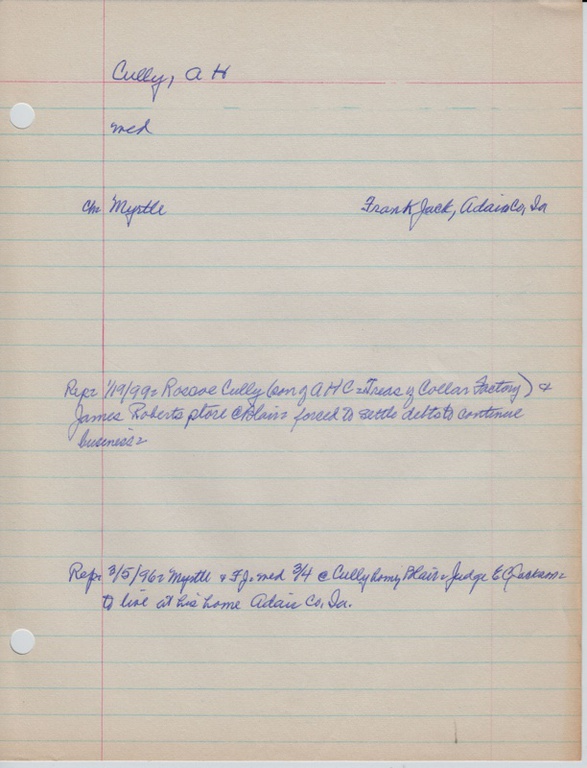 Cully, A H
med
ch Myrtle Frank Jack, Adair Co, Ia
Rep= 1/19/99= Roscoe Cully (son of A H C = Treas of Collar Factory) &
James Roberts store @ Blair= forced to settle debts to continue
business=
Rep= 3/5/96= Myrtle & FJ= med 3/4 @ Cully home, Blair= Judge E C Jackson=
to live at his home Adair Co, Ia.